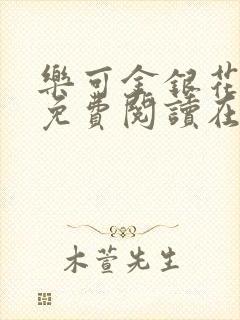 樂可金銀花
免費閱讀在
木萱先生